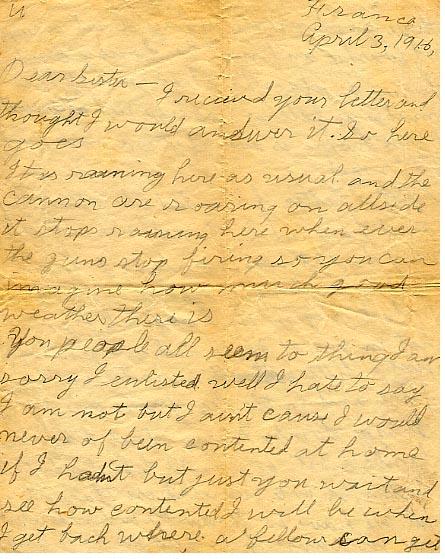 France
April 3, 1918,
Dear Sister - I received your letter and
thought I would andswer it. So here
goes
It is raining here as usual and the
cannon are roaring on allside
it stops raining here when ever
the guns stop firing so you can
imagine how much good
weather there is
You people all seem to thing I am
sorry I enlisted. well I hate to say
I am not but I aint cause I would
never of been contented at home
if I hadnt but just you wait and
see how contented I will be when
I get back where a fellow can get